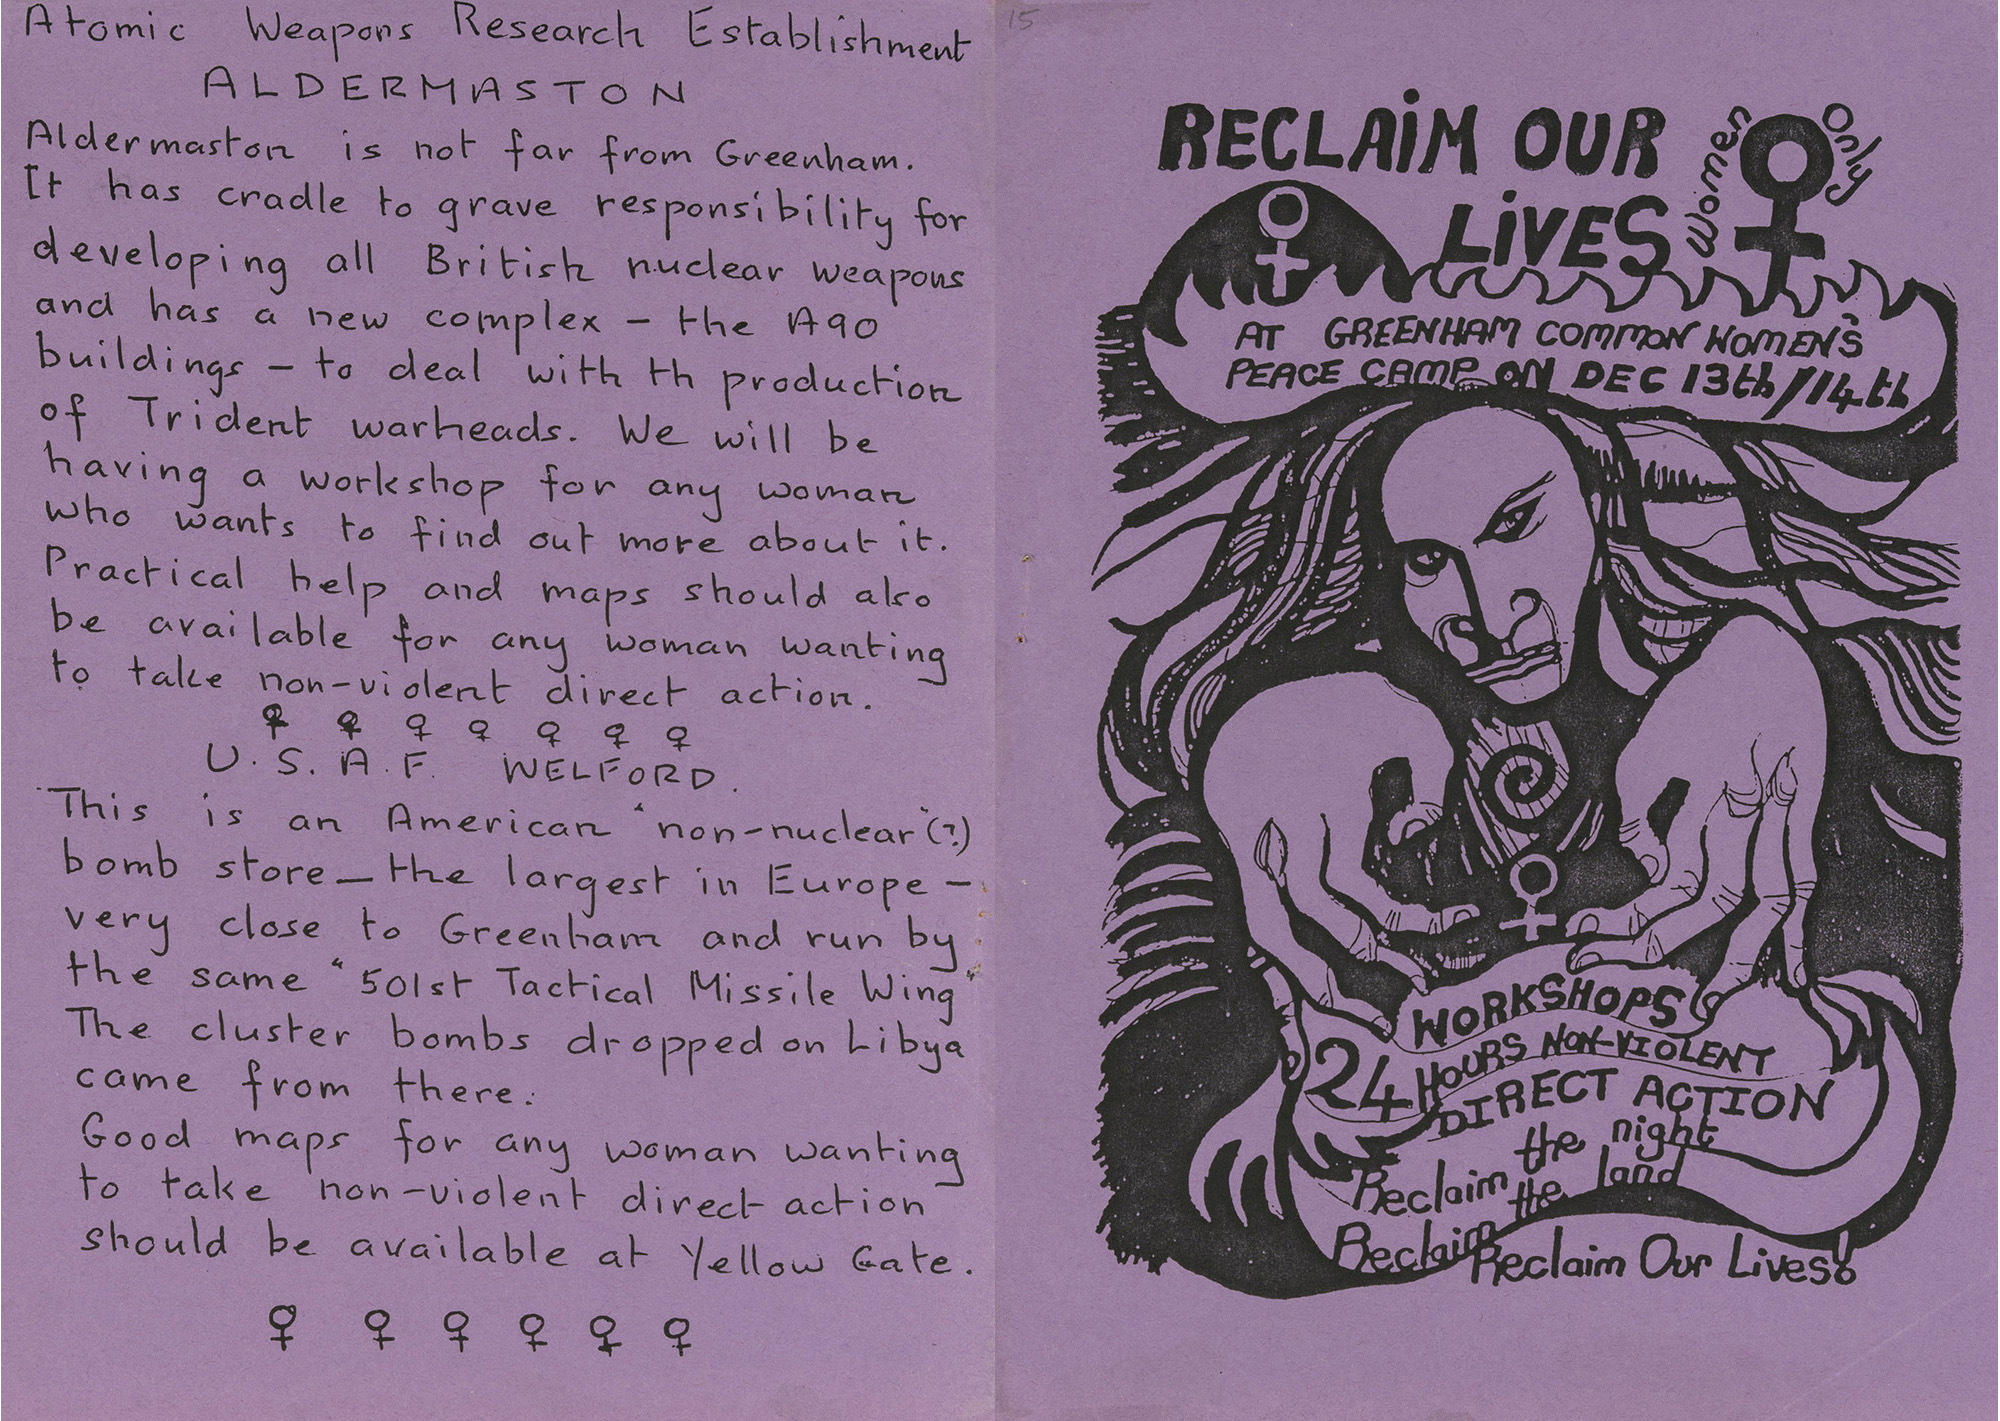 Atomic Weapons Research Establishment
ALDERMASTON
Aldermaston is not far from Greenham.
It has cradle to grave responsibility for
developing all British nuclear weapons
and has a new complex – the A90
buildings – to deal with th production
of Trident warheads. We will be
having a workshop for any woman
who wants to find out more about it.
Practical help and maps should also
be available for any woman wanting
to take non-violent direct action.
♀ ♀ ♀ ♀ ♀ ♀ ♀
U.S.A.F. WELFORD.
This is an American "non-nuclear"(?)
bomb store – the largest in Europe –
very close to Greenham and run by
the same "501st Tactical Missile Wing"
The cluster bombs dropped on Libya
came from there.
Good maps for any woman wanting
to take non-violent direct action
should be available at Yellow Gate.
♀ ♀ ♀ ♀ ♀ ♀
15
RECLAiM OUR
LiVES
Women Only
AT GREENHAM COMMON WOMEN'S
PEACE CAMP ON DEC 13th/14th
WORKSHOPS
24 HOURS NON-VIOLENT
DIRECT ACTION
Reclaim the night
Reclaim the land
Reclaim Our Lives!